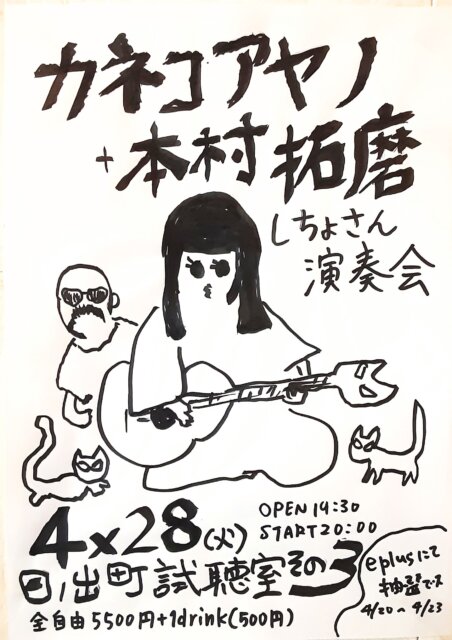 カネコアヤノ
+本村拓磨
しちょさん
演奏会
4×28(火)
OPEN 19:30
START 20:00
日ノ出町試聴室その3
全自由5500円+1drink(500円)
eplusにて
抽選です
4/20〜4/23